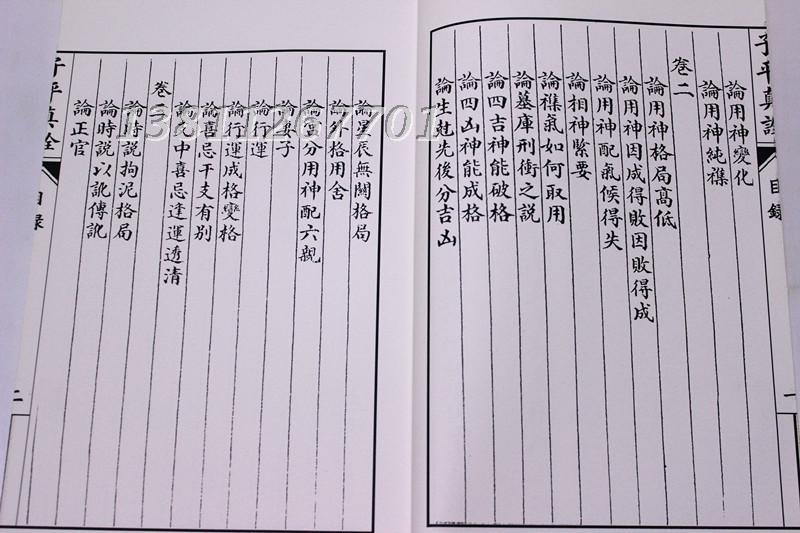 子平真詮
目錄
一
論用神變化
論用神純襍
卷二
論用神格局高低
論用神因成得敗因敗得成
論用神配氣候得失
論相神緊要
論襍氣如何取用
論墓庫刑衝之說
論四吉神能破格
論四凶神能成格
論生尅先後分吉凶
論星辰無關格局
論外格用舍
論宮分用神配六親
論妻子
論行運
論行運成格變格
論喜忌干支有別
論支中喜忌逢運透清
卷三
論時說拘泥格局
論時說以訛傳訛
論正官
子平真詮
目錄
二
13811267701